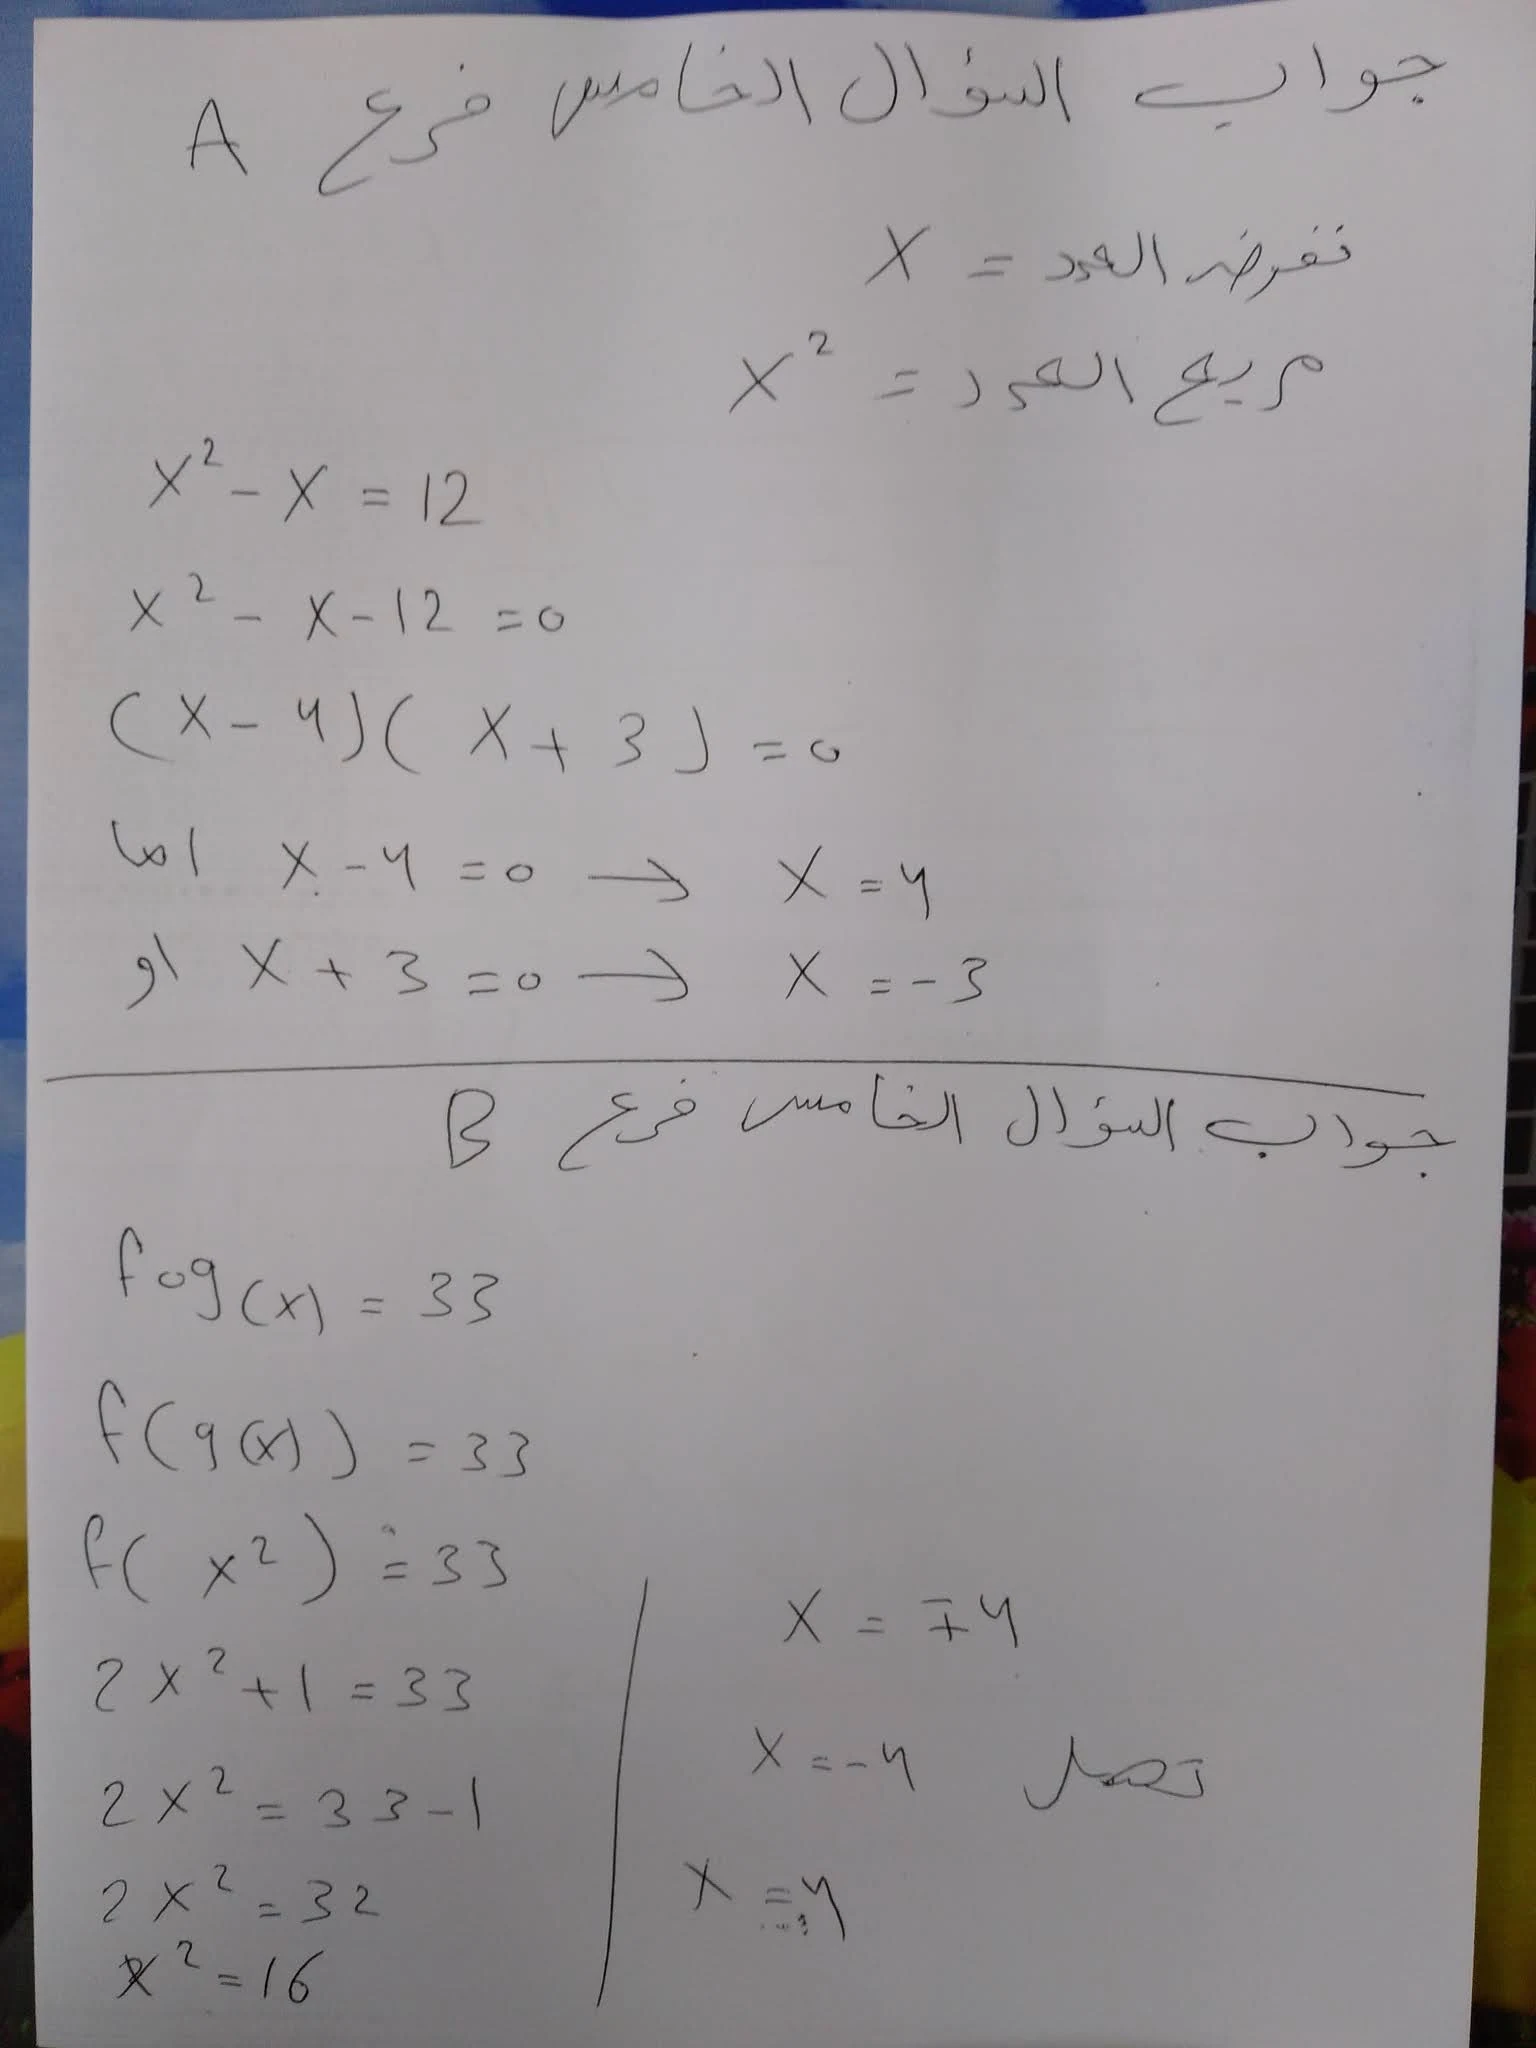 جواب السؤال الخامس فرع A
نفرض العدد = X
مربع العدد = X²
X² - X = 12
X² - X - 12 = 0
(X - 4)(X + 3) = 0
اما X - 4 = 0 → X = 4
او X + 3 = 0 → X = -3
جواب السؤال الخامس فرع B
fog(x) = 33
f(g(x)) = 33
f(x²) = 33
2X² + 1 = 33
2X² = 33 - 1
2X² = 32
X² = 16
X = ∓4
X = -4
X = 4